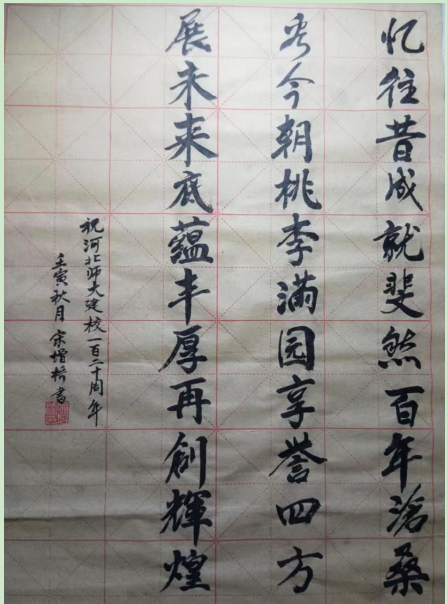 忆往昔成就斐然百年沧桑
看今朝桃李满园享誉四方
展未来底蕴丰厚再创辉煌
祝河北师大建校一百二十周年
壬寅秋月宋增桥书